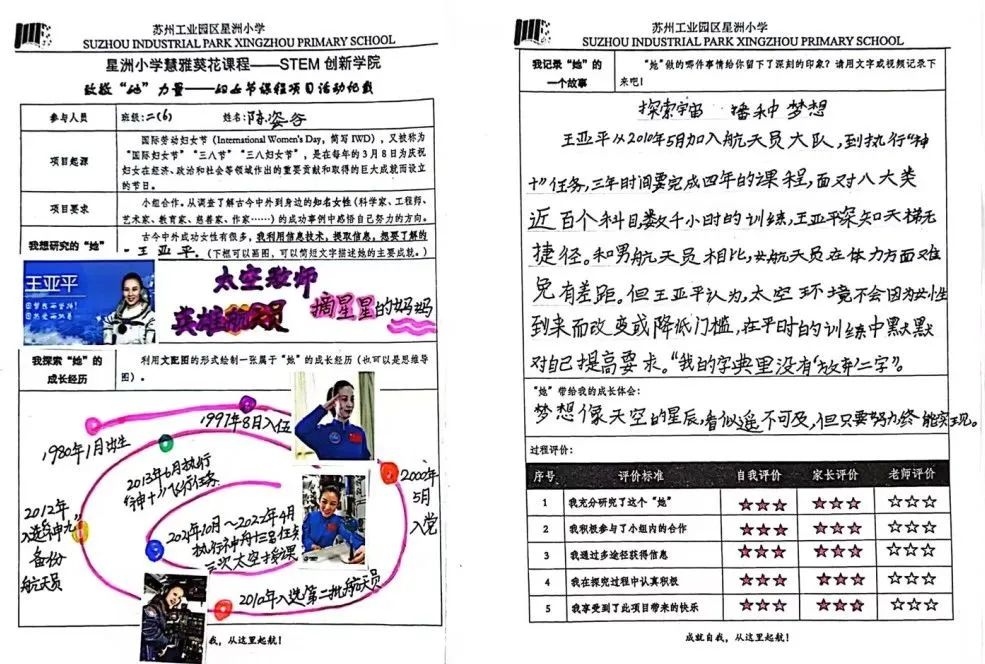 苏州工业园区星洲小学
SUZHOU INDUSTRIAL PARK XINGZHOU PRIMARY SCHOOL
星洲小学慧雅葵花课程——STEM 创新学院
致敬“她”力量——妇女节课程项目活动记载
参与人员 班级:二(6) 姓名:陈姿谷
项目起源
国际劳动妇女节(International Women's Day,简写 IWD),又被称为
“国际妇女节”“三八节”“三八妇女节”,是在每年的 3 月 8 日为庆祝
妇女在经济、政治和社会等领域作出的重要贡献和取得的巨大成就而设立
的节日。
项目要求
小组合作。从调查了解古今中外到身边的知名女性(科学家、工程师、
艺术家、教育家、慈善家、作家……)的成功事例中感悟自己努力的方向。
我想研究的“她”
古今中外成功女性有很多,我利用信息技术,提取信息,想要了解的
是 王亚平。(下框可以画图,可以简短文字描述她的主要成就。)
王亚平
因梦想而坚持!
因热爱而执着
太空教师
英雄航天员
摘星星的妈妈
我探索“她”的
成长经历
利用文配图的形式绘制一张属于“她”的成长经历(也可以是思维导
图)。
1980年1月出生
1997年8月入伍
2000年
5月
入党
2010年入选第二批航天员
2012年
入选“神九”
备份
航天员
2013年6月执行
“神十”飞行任务
2021年10月～2022年4月
执行神舟十三号任务
三次太空授课
我,从这里起航!
苏州工业园区星洲小学
SUZHOU INDUSTRIAL PARK XINGZHOU PRIMARY SCHOOL
我记录“她”的
一个故事
“她”做的哪件事情给你留下了深刻的印象?请用文字或视频记录下
来吧!
探索宇宙 播种梦想
王亚平从2010年5月加入航天员大队,到执行“神
十”任务,三年时间要完成四年的课程,面对八大类
近百个科目,数千小时的训练,王亚平深知天梯无
捷径。和男航天员相比,女航天员在体力方面难
免有差距。但王亚平认为,太空环境不会因为女性
到来而改变或降低门槛,在平时的训练中默默
对自己提高要求。“我的字典里没有‘放弃’二字”。
“她”带给我的成长体会:
梦想像天空的星辰,看似遥不可及,但只要努力终能实现。
过程评价:
序号 评价标准 自我评价 家长评价 老师评价
1 我充分研究了这个“她” ★★★ ★★★ ☆☆☆
2 我积极参与了小组内的合作 ★★★ ★★★ ☆☆☆
3 我通过多途径获得信息 ★★★ ★★★ ☆☆☆
4 我在探究过程中认真积极 ★★★ ★★★ ☆☆☆
5 我享受到了此项目带来的快乐 ★★★ ★★★ ☆☆☆
成就自我,从这里起航!